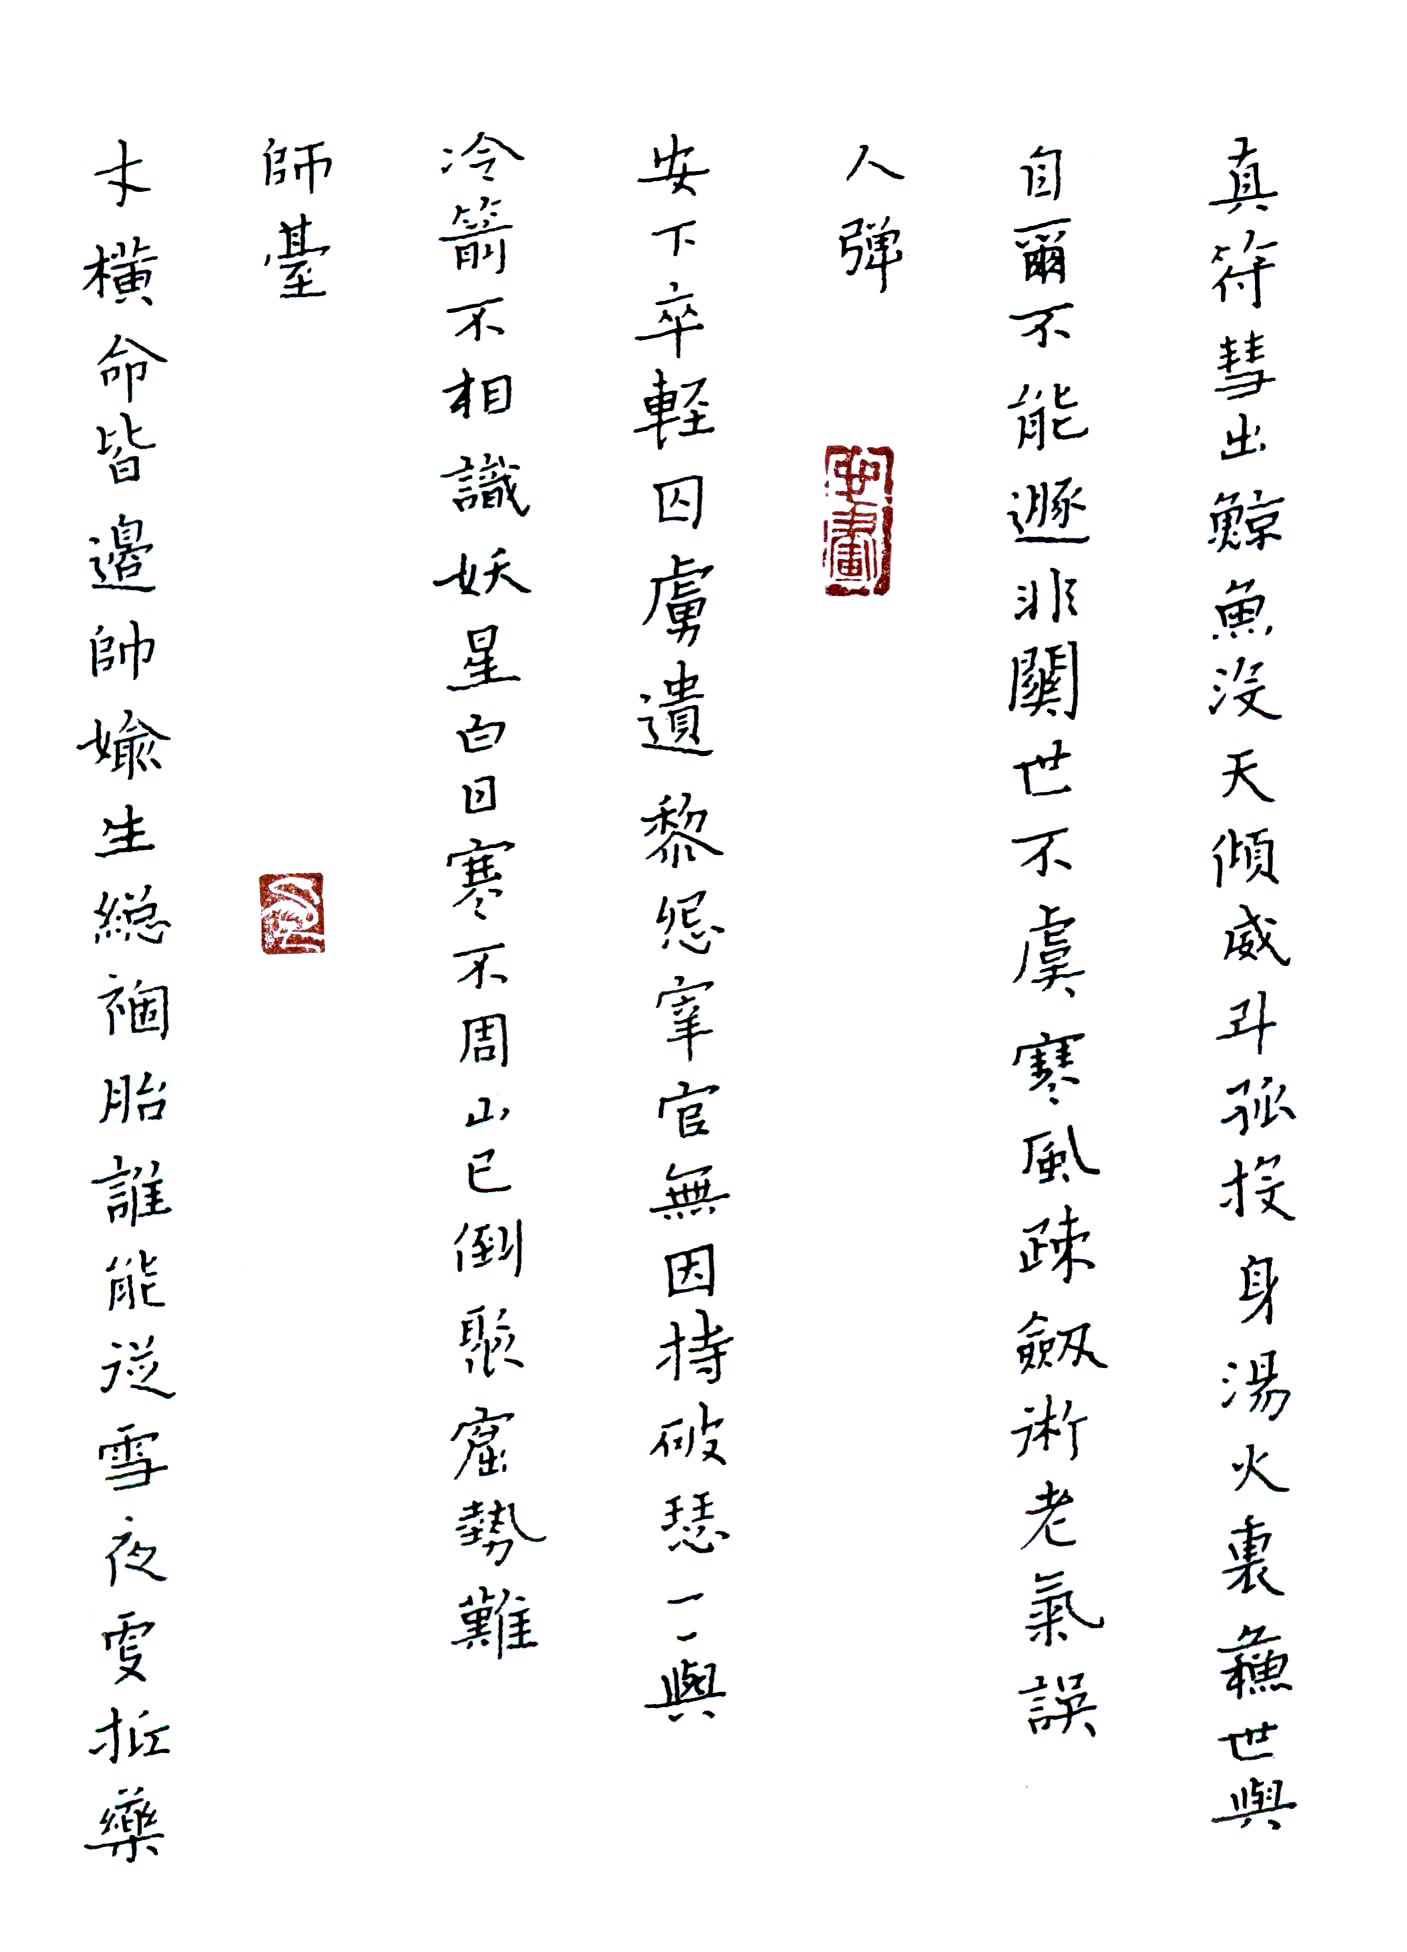 真符彗出鯨魚沒天傾威斗孤投身湯火裏蘸世與
自爾不能遯非關世不虞寒風疎劔術老氣誤
人彈
安下卒輕囚虜遺黎怨宰官無因持破瑟一一與
冷箭不相識妖星白日寒不周山已倒聚窟勢難
師臺
才橫命皆邉帥媮生緫禍胎誰能從雪夜更折藥